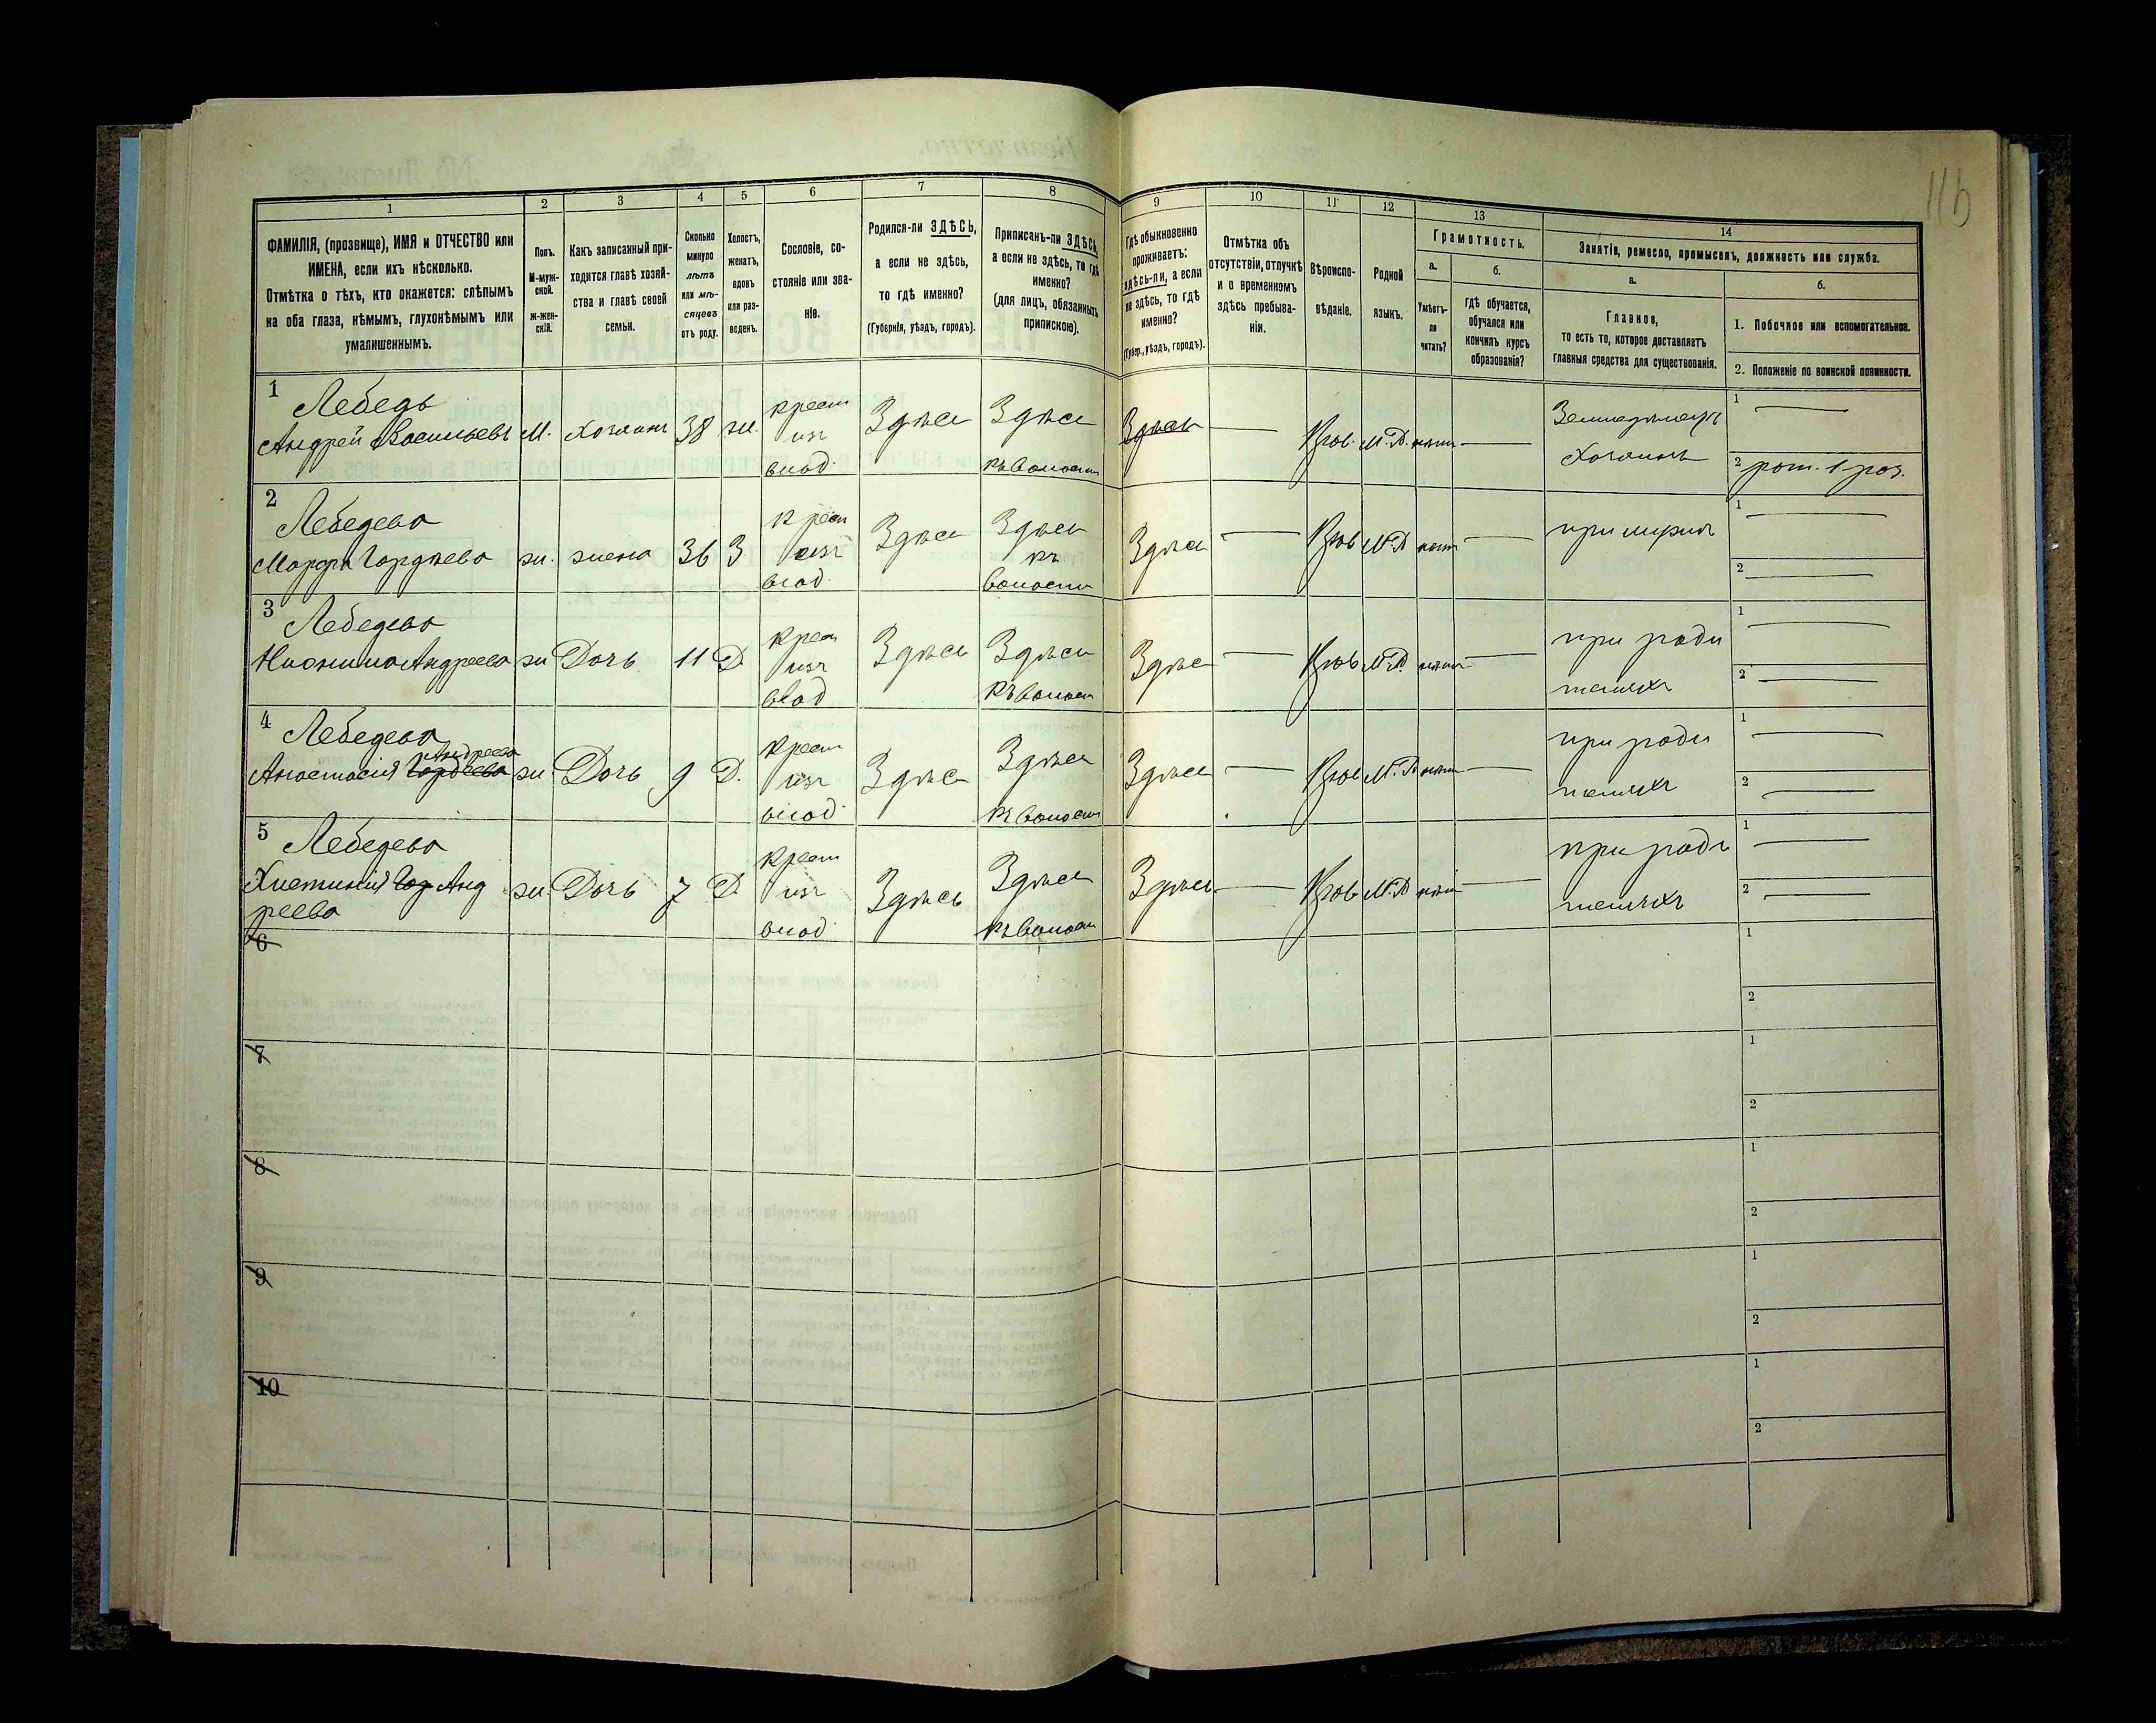 116
1
2
3
4
5
6
7
8
ФАМИЛІЯ, (прозвище), ИМЯ и ОТЧЕСТВО или
ИМЕНА, если ихъ нѣсколько.
Отмѣтка о тѣхъ, кто окажется: слѣпымъ
на оба глаза, нѣмымъ, глухонѣмымъ или
умалишеннымъ.
Полъ.
М-муж-
ской.
ж-жен-
скій.
Какъ записанный при-
ходится главѣ хозяй-
ства и главѣ своей
семьи.
Сколько
минуло
лѣтъ
или мѣ-
сяцевъ
отъ роду.
Холостъ,
женатъ,
вдовъ
или раз-
веденъ.
Сословіе, со-
стояніе или зва-
ніе.
Родился-ли ЗДѢСЬ,
а если не здѣсь,
то гдѣ именно?
(Губернія, уѣздъ, городъ).
Приписанъ-ли ЗДѢСЬ,
а если не здѣсь, то гдѣ
именно?
(для лицъ, обязанныхъ
припискою).
9
10
11
12
13
14
Гдѣ обыкновенно
проживаетъ:
здѣсь-ли, а если
не здѣсь, то гдѣ
именно?
(Губер., уѣздъ, городъ).
Отмѣтка объ
отсутствіи, отлучкѣ
и о временномъ
здѣсь пребыва-
ніи.
Вѣроиспо-
вѣданіе.
Родной
языкъ.
Грамотность.
а.
б.
Умѣетъ-
ли
читать?
гдѣ обучается,
обучался или
кончилъ курсъ
образованія?
Занятіе, ремесло, промыселъ, должность или служба.
а.
б.
Главное,
то есть то, которое доставляетъ
главныя средства для существованія.
1. Побочное или вспомогательное.
2. Положеніе по воинской повинности.
1
Лебедь
Андрей Васильевъ М. хозяинъ 38 ж.
крест
изъ
влад.
Здѣсь
Здѣсь
къ волости
Здѣсь
Прав. М.Р. нѣтъ
Земледѣлецъ
Хозяинъ
1
2
2
Лебедева
Марфа Гордѣева ж. жена 36 З
крест
изъ
влад.
Здѣсь
Здѣсь
къ
волости
Здѣсь
Прав М.Р нѣтъ
при мужѣ
1
2
3
Лебедева
Андреева ж Дочь 11 Д
крест
изъ
влад
Здѣсь
Здѣсь
къ волост
Здѣсь
Прав М.Р. нѣтъ
при роди
теляхъ
1
2
4
Лебедева
Андреева
Анастасія Гордѣева ж. Дочь 9 Д.
крест
изъ
влад.
Здѣсь
Здѣсь
къ волости
Здѣсь
Прав М.Р нѣтъ
при роди
теляхъ
1
2
5
Лебедева
Анд ж. Дочь 7 Д
реева
крест
изъ
влад.
Здѣсь
Здѣсь
къ волости
Здѣсь
Прав М.Р нѣтъ
при роди
теляхъ
1
2
6
1
2
7
1
2
8
1
2
9
1
2
10
1
2